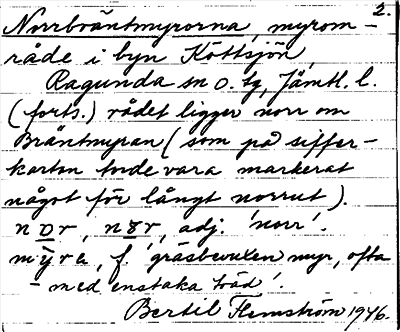 2.
Norrbräntmyrorna, myrom-
råde i byn Köttsjön,
Ragunda sn o. tg, Jämtl. l.
(forts.) rådet ligger norr om
Bräntmyran (som på siffer-
kartan torde vara markerat
något för långt norrut).
adj. 'norr'.
f. 'gräsbevuxen myr, ofta
- med enstaka träd'.
Bertil Flemström 1946.